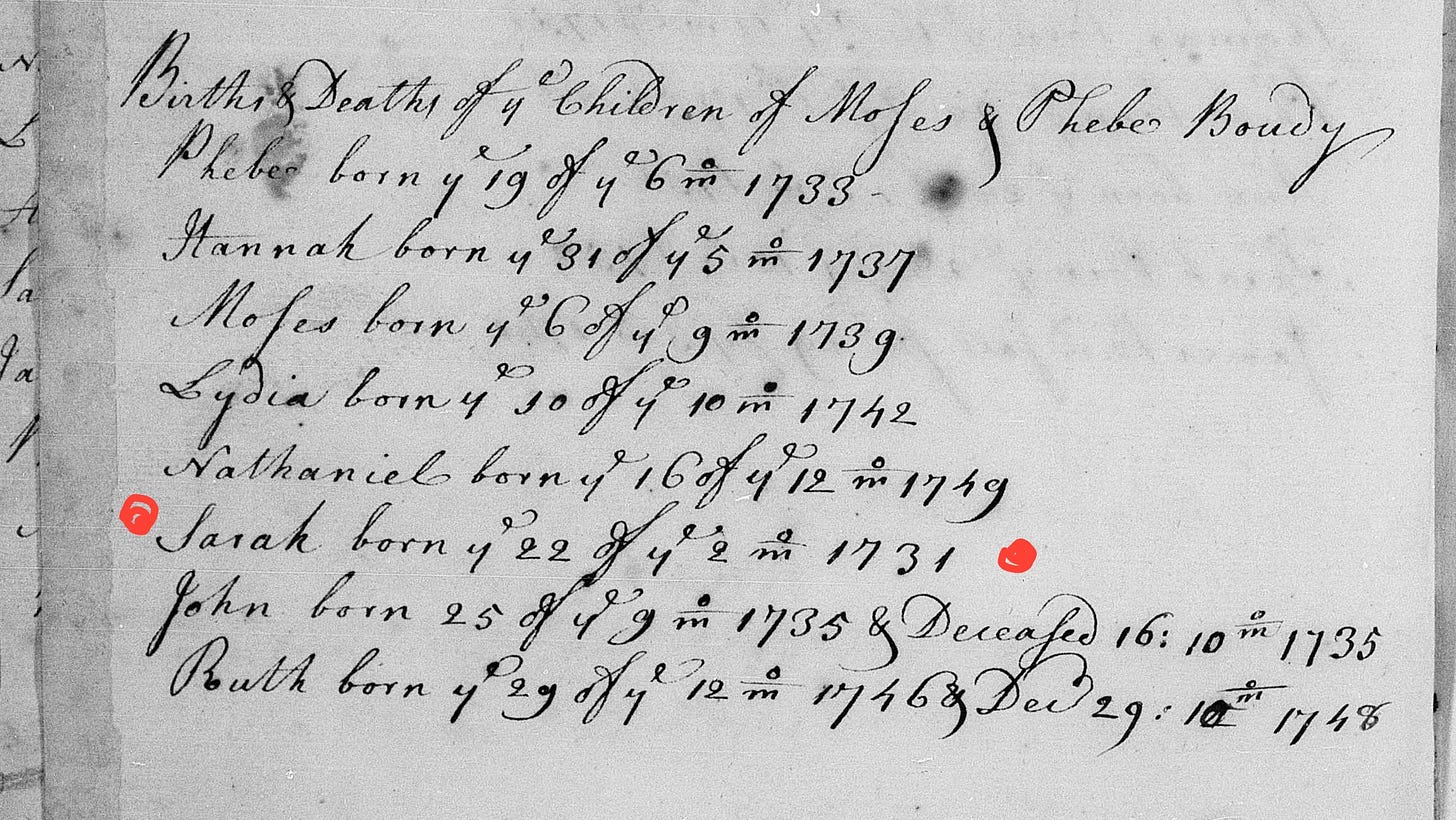 Births & Deaths of yᵉ Children of Moses & Phebe Boudy
Phebe born yᵉ 19 of yᵉ 6 mᵒ 1733
Hannah born yᵉ 31 of yᵉ 5 mᵒ 1737
Moses born yᵉ 6 of yᵉ 9 mᵒ 1739
Lydia born yᵉ 10 of yᵉ 10 mᵒ 1742
Nathaniel born yᵉ 16 of yᵉ 12 mᵒ 1749
Sarah born yᵉ 22 of yᵉ 2 mᵒ 1731
John born 25 of yᵉ 9 mᵒ 1735 & Deceased 16: 10 mᵒ 1735
Ruth born yᵉ 29 of yᵉ 12 mᵒ 1746 & Decᵈ 29: mᵒ 1748